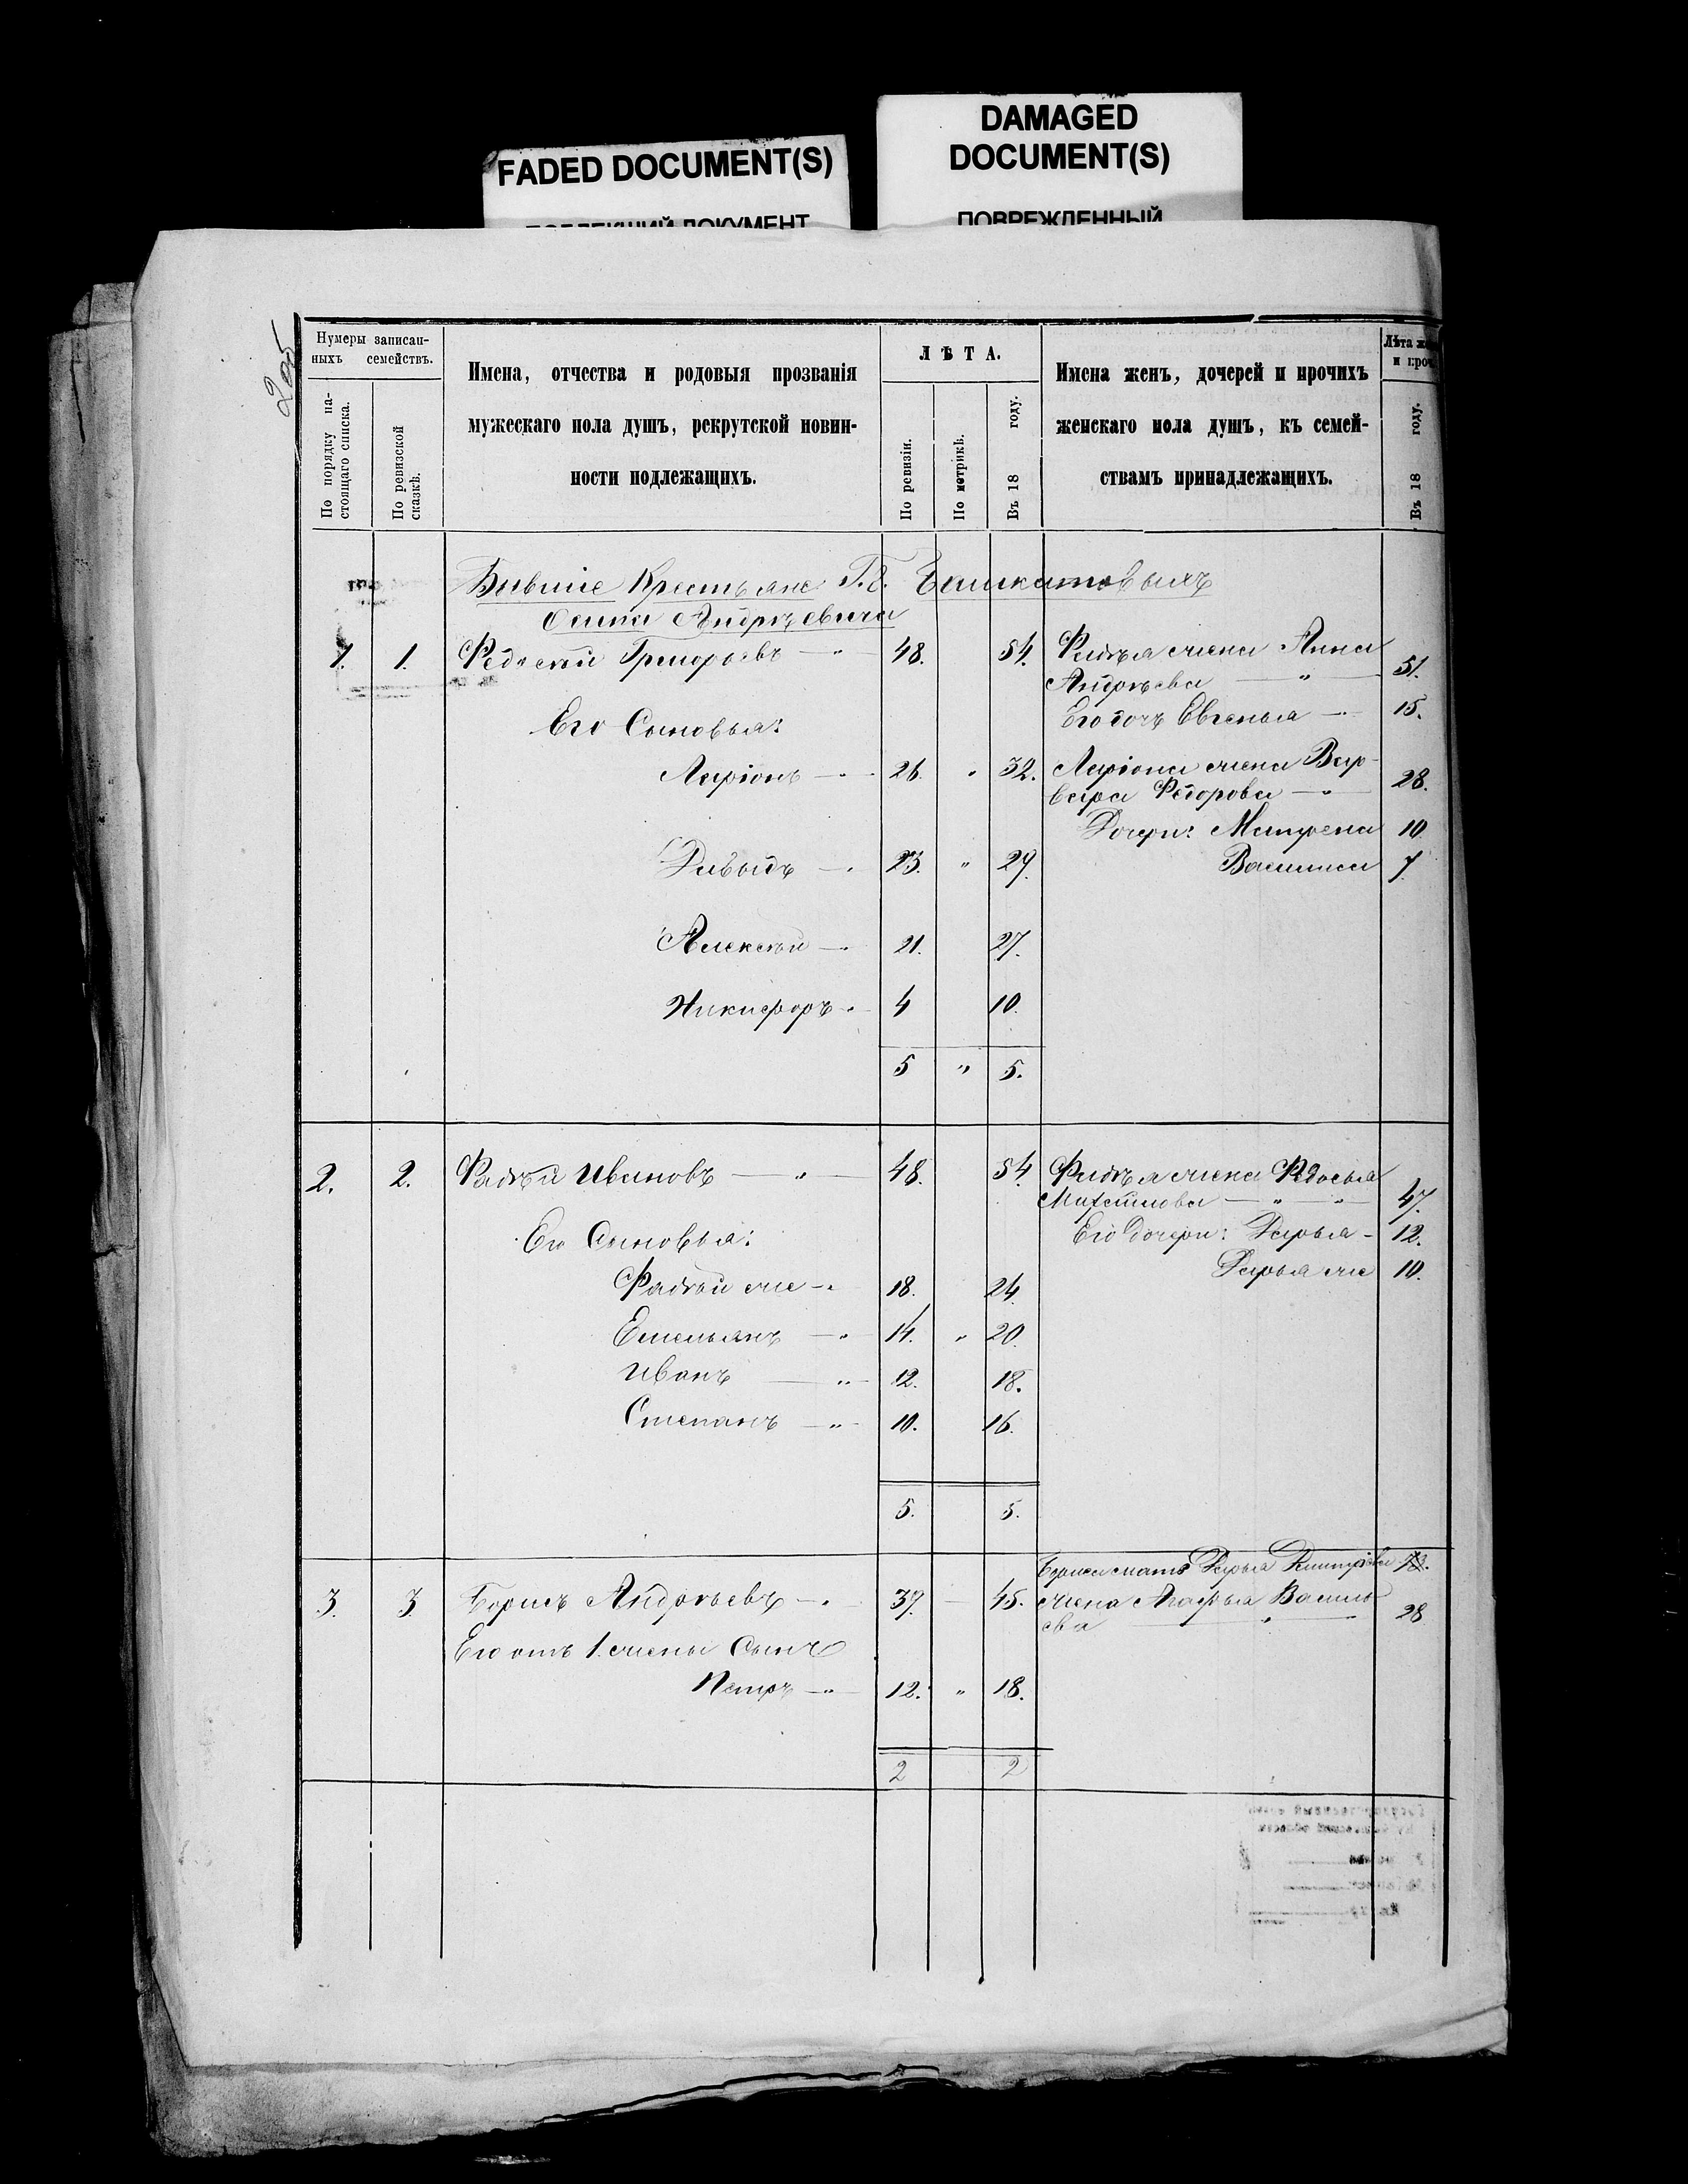 FADED DOCUMENT(S)
DAMAGED
DOCUMENT(S)
ПОВРЕЖДЕННЫЙ
Нумеры записан-
ныхъ семействъ.
По порядку на-
стоящаго списка.
По ревизской
сказкѣ.
Имена, отчества и родовыя прозванія
мужескаго пола душъ, рекрутской повин-
ности подлежащихъ.
ЛѢТА.
По ревизіи.
По метрикѣ.
Въ 18 году.
Имена женъ, дочерей и прочихъ
женскаго пола душъ, къ семей-
ствамъ принадлежащихъ.
Лѣта
и проч.
Въ 18 году.
Бывшіе Крестьяне Г.г. Башкатовыхъ
Осипа Андрѣевича
1. 1. Григорьевъ — " — 48. 54. жена Анна
Андрѣева — " — 51.
Его Сыновья:
Его дочь Евгенья — 15.
Ларіонъ — 26. " 32. Ларіона жена Вар-
вара Федорова — " 28.
Дочери: Матрена 10.
Давыдъ — 23. " 29. Василиса 7.
Алексѣй — 21. 27.
Никифоръ 4 10.
5 " 5.
2. 2. Фадѣй Ивановъ — " — 48. 54. Фадѣя жена Федосья
Михайлова — " " 47.
Его Сыновья:
Его дочери: Дарья - 12.
Дарья же 10.
Фадѣй же 18. 24.
Емельянъ — " 14. " 20.
Иванъ — " — 12. 18.
Степанъ — " — 10. 16.
5. 5.
Бориса мать Дарья Дмитріева
3. 3 Борисъ Андрѣевъ — 39. — 45. жена Агафья Василь-
ева — " — 28
Его отъ 1. жены Сынъ
Петръ — " — 12. " 18.
2 2